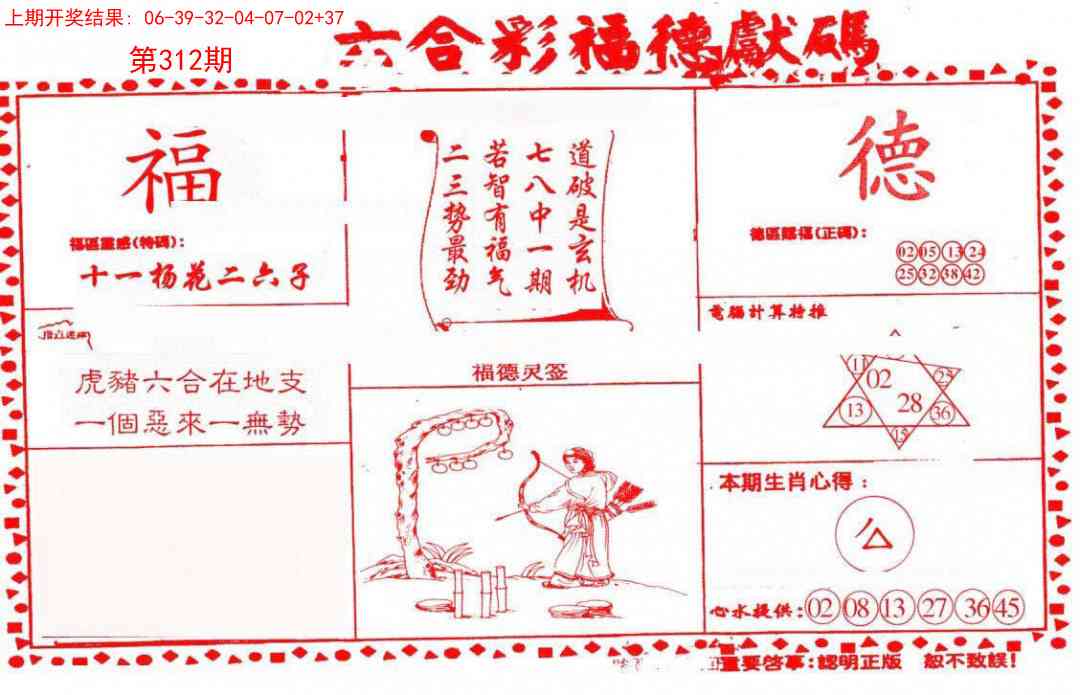 上期开奖结果: 06-39-32-04-07-02+37
第312期
六合彩福德獻碼
福
福區靈感(特碼):
十一杨花二六子
道破是玄机
七八中一期
若智有福气
二三势最劲
德
德區賜福(正碼):
02 05 13 24
25 32 38 42
虎豬六合在地支
一個惡來一無勢
福德灵签
電腦計算特推
11 02 25
13 28 36
15
本期生肖心得:
心水提供: 02 08 13 27 36 45
重要啓事:認明正版 恕不致誤!